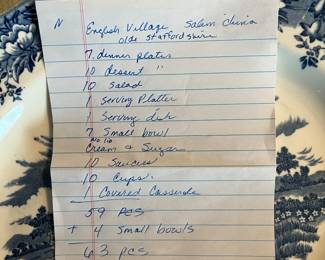 N English Village Salem China
olde Staffordshire
7 dinner plates
10 dessert "
10 Salad
1 Serving Platter
1 Serving dish
7 Small bowl
no lid
Cream & Sugar
10 Saucers
10 Cups
1 Covered Casserole
59 pcs
+ 4 Small bowls
63 pcs